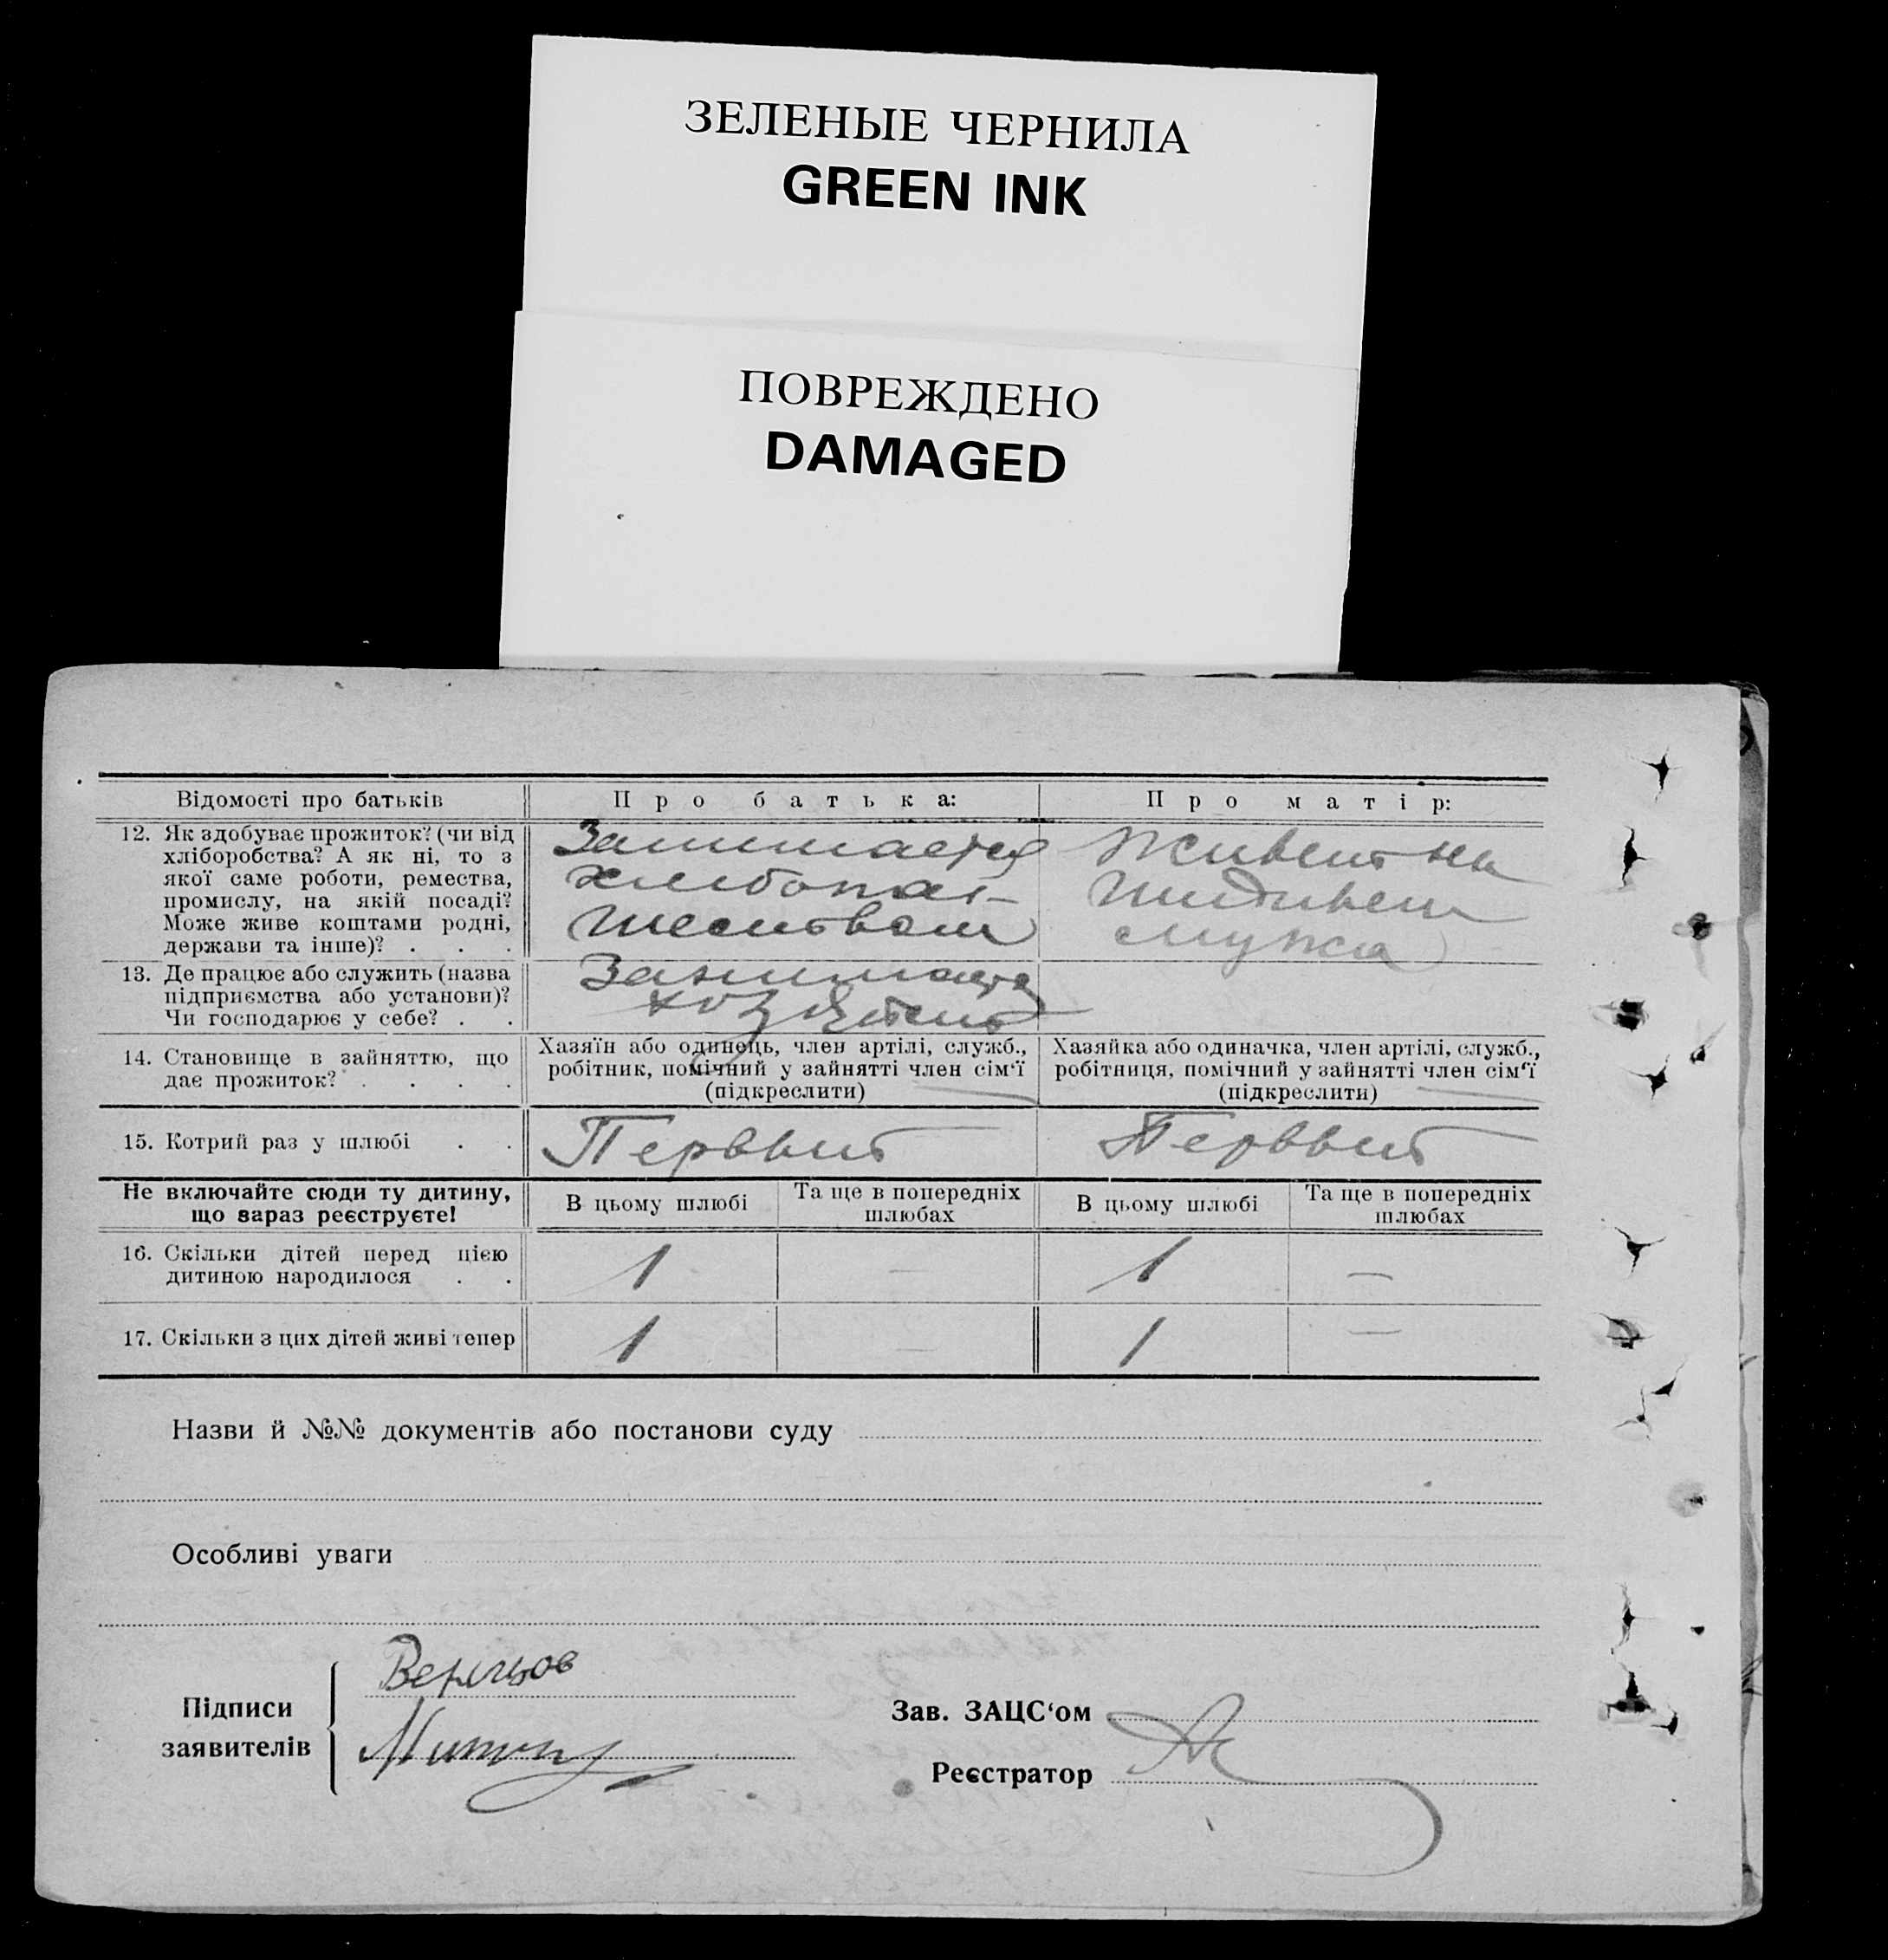 ЗЕЛЕНЫЕ ЧЕРНИЛА
GREEN INK
ПОВРЕЖДЕНО
DAMAGED
Відомості про батьків
Про батька:
Про матір:
12. Як здобуває прожиток? (чи від
хліборобства? А як ні, то з
якої саме роботи, ремества,
промислу, на якій посаді?
Може живе коштами родні,
держави та інше)? . . .
Занимается
хлебопа-
шеством
Живет на
иждивен
мужа
13. Де працює або служить (назва
підприємства або установи)?
Чи господарює у себе? . .
Занимается
14. Становище в зайняттю, що
дає прожиток? . . . .
Хазяїн або одинець, член артілі, служб.,
робітник, помічний у зайнятті член сім'ї
(підкреслити)
Хазяйка або одиначка, член артілі, служб.,
робітниця, помічний у зайнятті член сім'ї
(підкреслити)
15. Котрий раз у шлюбі . .
Первый
Первый
Не включайте сюди ту дитину,
що зараз реєструєте!
В цьому шлюбі
Та ще в попередніх
шлюбах
В цьому шлюбі
Та ще в попередніх
шлюбах
16. Скільки дітей перед цією
дитиною народилося . .
1 — 1 —
17. Скільки з цих дітей живі тепер
1 — 1 —
Назви й №№ документів або постанови суду
Особливі уваги
Підписи
заявителів
Зав. ЗАЦС'ом
Реєстратор